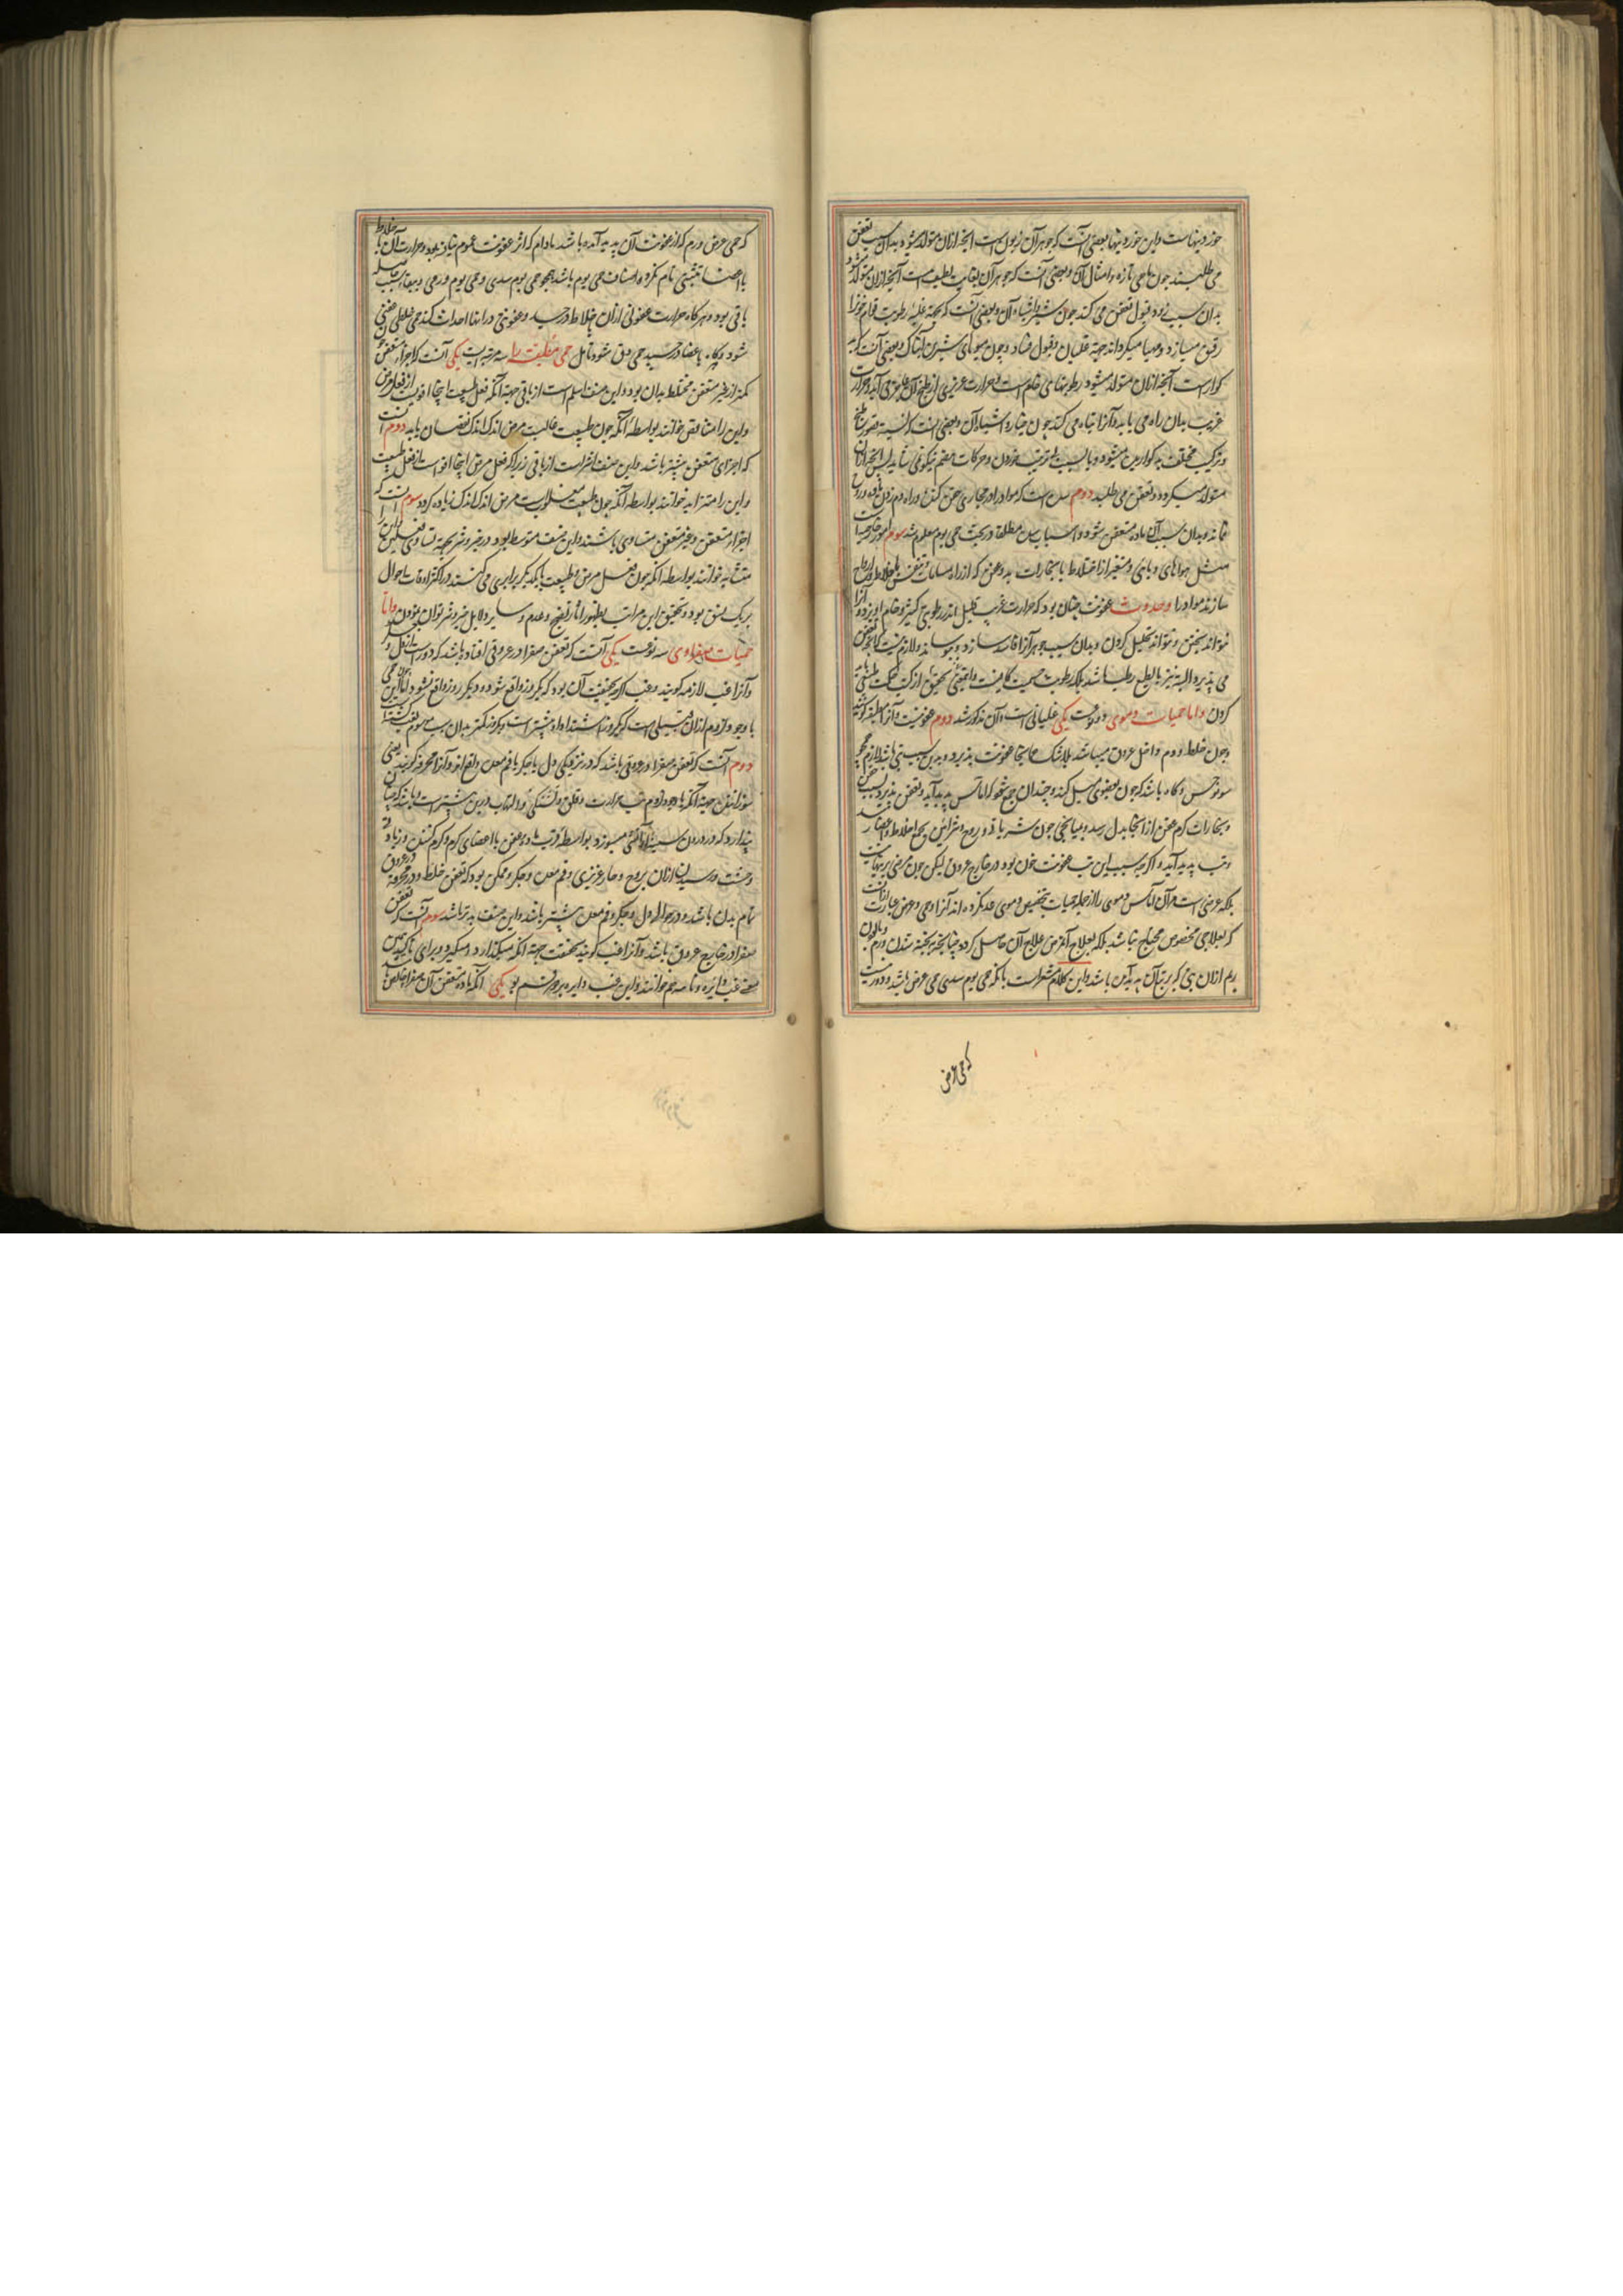 خوردنیهاست و این خوردنیها بعضی آنست که جوهر آن زبون است آنچه ازان متولد میشود بدان سبب تعفن
می طلبد چون ماهی تازه و امثال آن و بعضی آنست که جوهر آن بغایت لطیف است آنچه ازان متولد شود
بدان سبب زود قبول تعفن می کند چون شیر و اشباه آن و بعضی آنست که بجهة غلبه رطوبت قوام خون را
رقیق میسازد و مهیا میکرداند جهة غلیان و قبول فساد و چون میوهای شیرین آبناک و بعضی آنست که بد
کوار است آنچه ازان متولد میشود رطوبتهای خام است و حرارت عزیزی از طبخ آن عاجز می آید و حرارت
غریب بدان راه می یابد و آنرا تباه می کند چون خیار و اشباه آن و بعضی
و ترکیب مختلف بد کوار بدن میشود و یا بسبب ترتیب خوردن و حرکات هضم نیکوئی نیابد پس آنچه ازان
متولد میکردد و تعفن می طلبد دوم سده است که مواد را در مجاری حقن کند و راه دم زدن
نماند و بدان سبب آن ماده متعفن شود و اسباب سده مطلقا در بحث حمی یوم معلوم شد سوم امور خارجیست
مثل هواهای وبایی و متغیر از اختلاط با بخارات بد و عفن که از راه مسامات و تنفس با اخلاط و ارواح
سازند مواد را و حدوث عفونت چنان بود که حرارت غریب قلیل اندر رطوبتی کثیر و خام آویزد و آنرا
نتواند پختن و نتواند تحلیل کردن و بدان سبب جوهر آنرا فاسد سازد و بپوساند و لازم نیست که آنچه تعفن
می پذیرد البته نیز بالطبع رطب باشد بلکه رطوبت کافیست و تحقیق از کتب حکمت
کردن و اما حمیات دموی دو نوعست یکی غلیانی است و آن مذکور شد دوم عفونیست و آنرا مطبقه کویند
و چون خلط دم داخل عروق میباشد بلا شک هر کجا عفونت پذیرد بدین سبب تبی باشد لازم همچو
سونوخس و کاه باشد که چون بعضوی میل کند و چندان جمع شود که اماس پدید آید و تعفن پذیرد بسبب
و بخارات کرم عفن از انجا بدل رسد و بمیانجی خون شریانی و روح و شرائین بجمیع اخلاط و اعضا رسد
و تب پدید آید و اکرچه سبب این تب عفونت خون بود در خارج عروق لیکن چون مرضی برنهاده نیست
بلکه عرضی است مر آن آماس دموی را از جمله حمیات بتخصیص دموی عد نکرده اند آنرا و حمی عرض عبارت ازانست
که بعلاجی مخصوص محتاج نباشد بلکه بعلاج آن مرض علاج آن حاصل کردد چنانچه بپخته شدن ورم و پالودن
ریم ازان تبی که بر تبع آن پدید آمده باشد و این کلام مشعر است بانکه حمی یوم سدی حمی عرض باشد و دور نیست
که حمی عرض
که حمی عرض ورم که از عفونت آن پدید آمده باشد مادام که اثر عفونت عموم نیافته بود و حرارت آن با اخلاط
یا اعضا تشبثی تام نکرده از اصناف حمی یوم باشد همچو حمی یوم سدی و حمی یوم ورمی و ببقاء سبب
باقی بود و هرکاه حرارت عفونی ازان باخلاط در رسید و عفونتی در انها احداث کند حمی خلطی عفنی
شود و کاه باعضا در چسپد حمی دق شود تامل حمی مطبقه را سه مرتبه است یکی آنست که اجزاء متعفن
کمتر از غیر متعفن مختلط بدان بود و این صنف اسلم است از باقی جهة آنکه فعل طبیعت اینجا اقویست از فعل مرض
و این را متناقص خوانند بواسطه آنکه چون طبیعت غالبست مرض اندک اندک نقصان یابد دوم آنست
که اجزای متعفن بیشتر باشد و این صنف اشر است از باقی زیرا که فعل مرض اینجا اقویست از فعل طبیعت
و این را متزایده خوانند بواسطه آنکه چون طبیعت مغلوبست مرض اندک اندک زیاده کردد سوم آنست که
اجزاء متعفن و غیر متعفن متساوی باشند و این صنف متوسط بود در خیر و شر بجهة تساوی فعلین و این را
متشابه خوانند بواسطه آنکه چون فعل مرض و طبیعت با یکدیکر برابری می کنند در اکثر اوقات احوال
بر یک نسق بود و تحقیق این مراتب بظهور اثار نضج و عدم و سایر دلایل خیر و شر توان نمودن و اما
حمیات صفراوی سه نوعست یکی آنست که تعفن صفرا در عروقی افتاده باشد که دور است از دل و جکر
و آنرا غب لازمه کویند و غب اکرچه حقیقت آن بود که یکروز واقع شود و دیکر روز واقع نشود و اما این حمی
با وجود لزوم ازان قبیلی است که یکروز اشتداد او بیشتر است و یکروز کمتر بدان سبب موسوم بغب کشته
دوم آنست که تعفن صفرا در عروقی باشد که در نزدیکی دل یا جکر یا فم معده واقع اند و آنرا محرقه کویند یعنی
سوزاننده جهة آنکه با وجود لزوم تب حرارت و قلق و تشنکی و التهاب درین بیشتر است و باشد که چنان
پندارد که در درون سینه او آتش میسوزد بواسطه قربت ماده عفن با اعضای کرم و کرم کننده و زیادتی
وحشت و رسیدن ازان بروح و حار عزیزی و فم معده و جکر و ممکن بود که تعفن خلط در محرقه در عروق
تمام بدن باشد و در حوالی دل و جکر و فم معده بیشتر باشد و این صنف بدتر باشد سوم آنست که تعفن
صفرا در خارج عروق باشد و آنرا غب کویند بحقیقت جهة آنکه میکذارد و میکیرد و برای تاکید همین
معنی غب دایره و نایبه هم خوانند و این غب دایره بر دو قسم بود یکی آنکه ماده متعفن آن صفرا خالص باشد